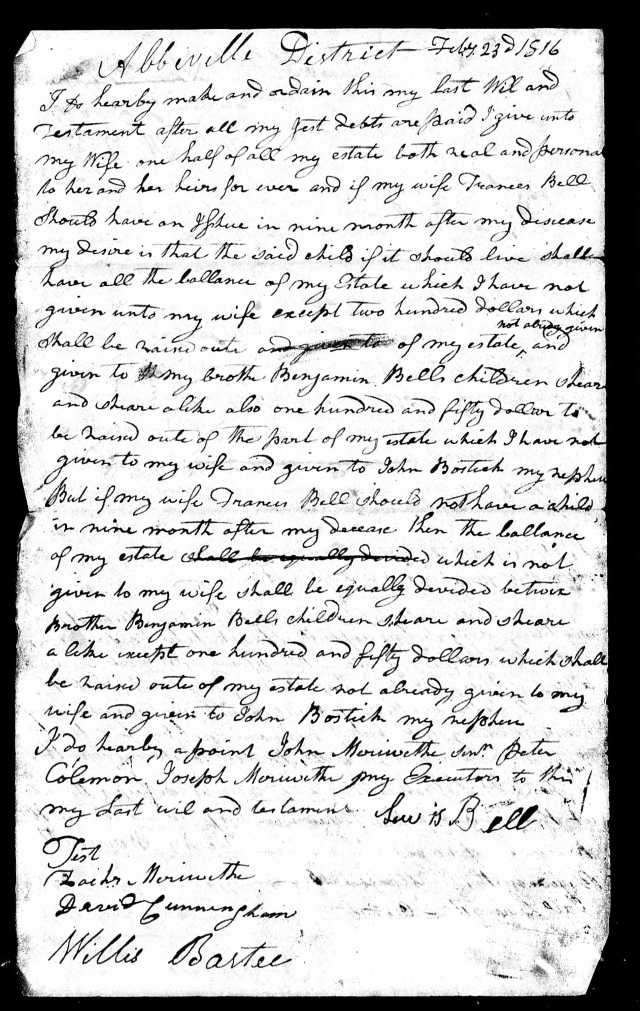 Abbeville District Feby. 23d 1816
I do hearby make and ordain this my last Wil and
Testament after all my Jest debts are paid I give unto
my Wife one half of all my estate both real and personal
to her and her heirs for ever and if my wife Frances Bell
Should have an Isshue in nine month after my disease
my desire is that the said child if it should live shall
have all the ballance of my Estate which I have not
given unto my wife except two hundred dollars which
shall be raised oute and given to of my estate not alredy given and
given to my brothe Benjamin Bells children sheare
and sheare alike also one hundred and fifty dollar to
be raised oute of the part of my estate which I have not
given to my wife and given to John Bostick my nepheu
But if my wife Frances Bell should not have a child
in nine month after my decease then the ballance
of my estate shall be equally devided which is not
given to my wife shall be equally devided betwix
Brother Benjamin Bells children sheare and sheare
a like except one hundred and fifty dollars which shall
be raise oute of my estate not already given to my
wife and given to John Bostick my nepheu
I do hearby a point John Meriwethe Senr. Peter
Colemon, Joseph Meriwethe my Executors to this
my Last wil and testament Lewis Bell
Test
Zachr. Meriwethe
David Cunningham
Willis Bastee